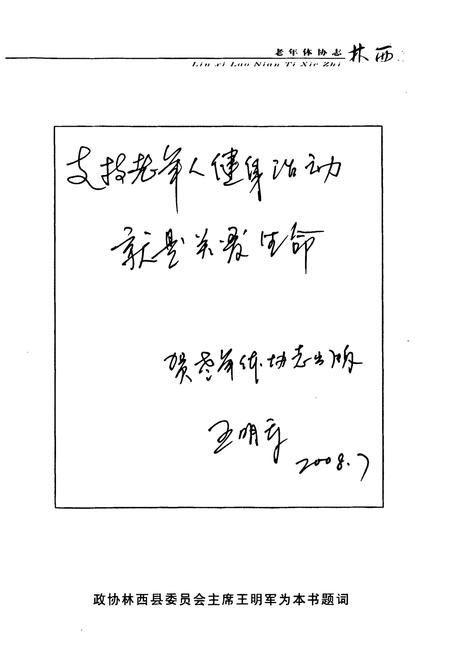 老年体协志 林西
Lin xi Lao Nian Ti Xie Zhi
支持老年人健身活动
就是关爱生命
贺老年体协志出版
王明军
2008.7
政协林西县委员会主席王明军为本书题词